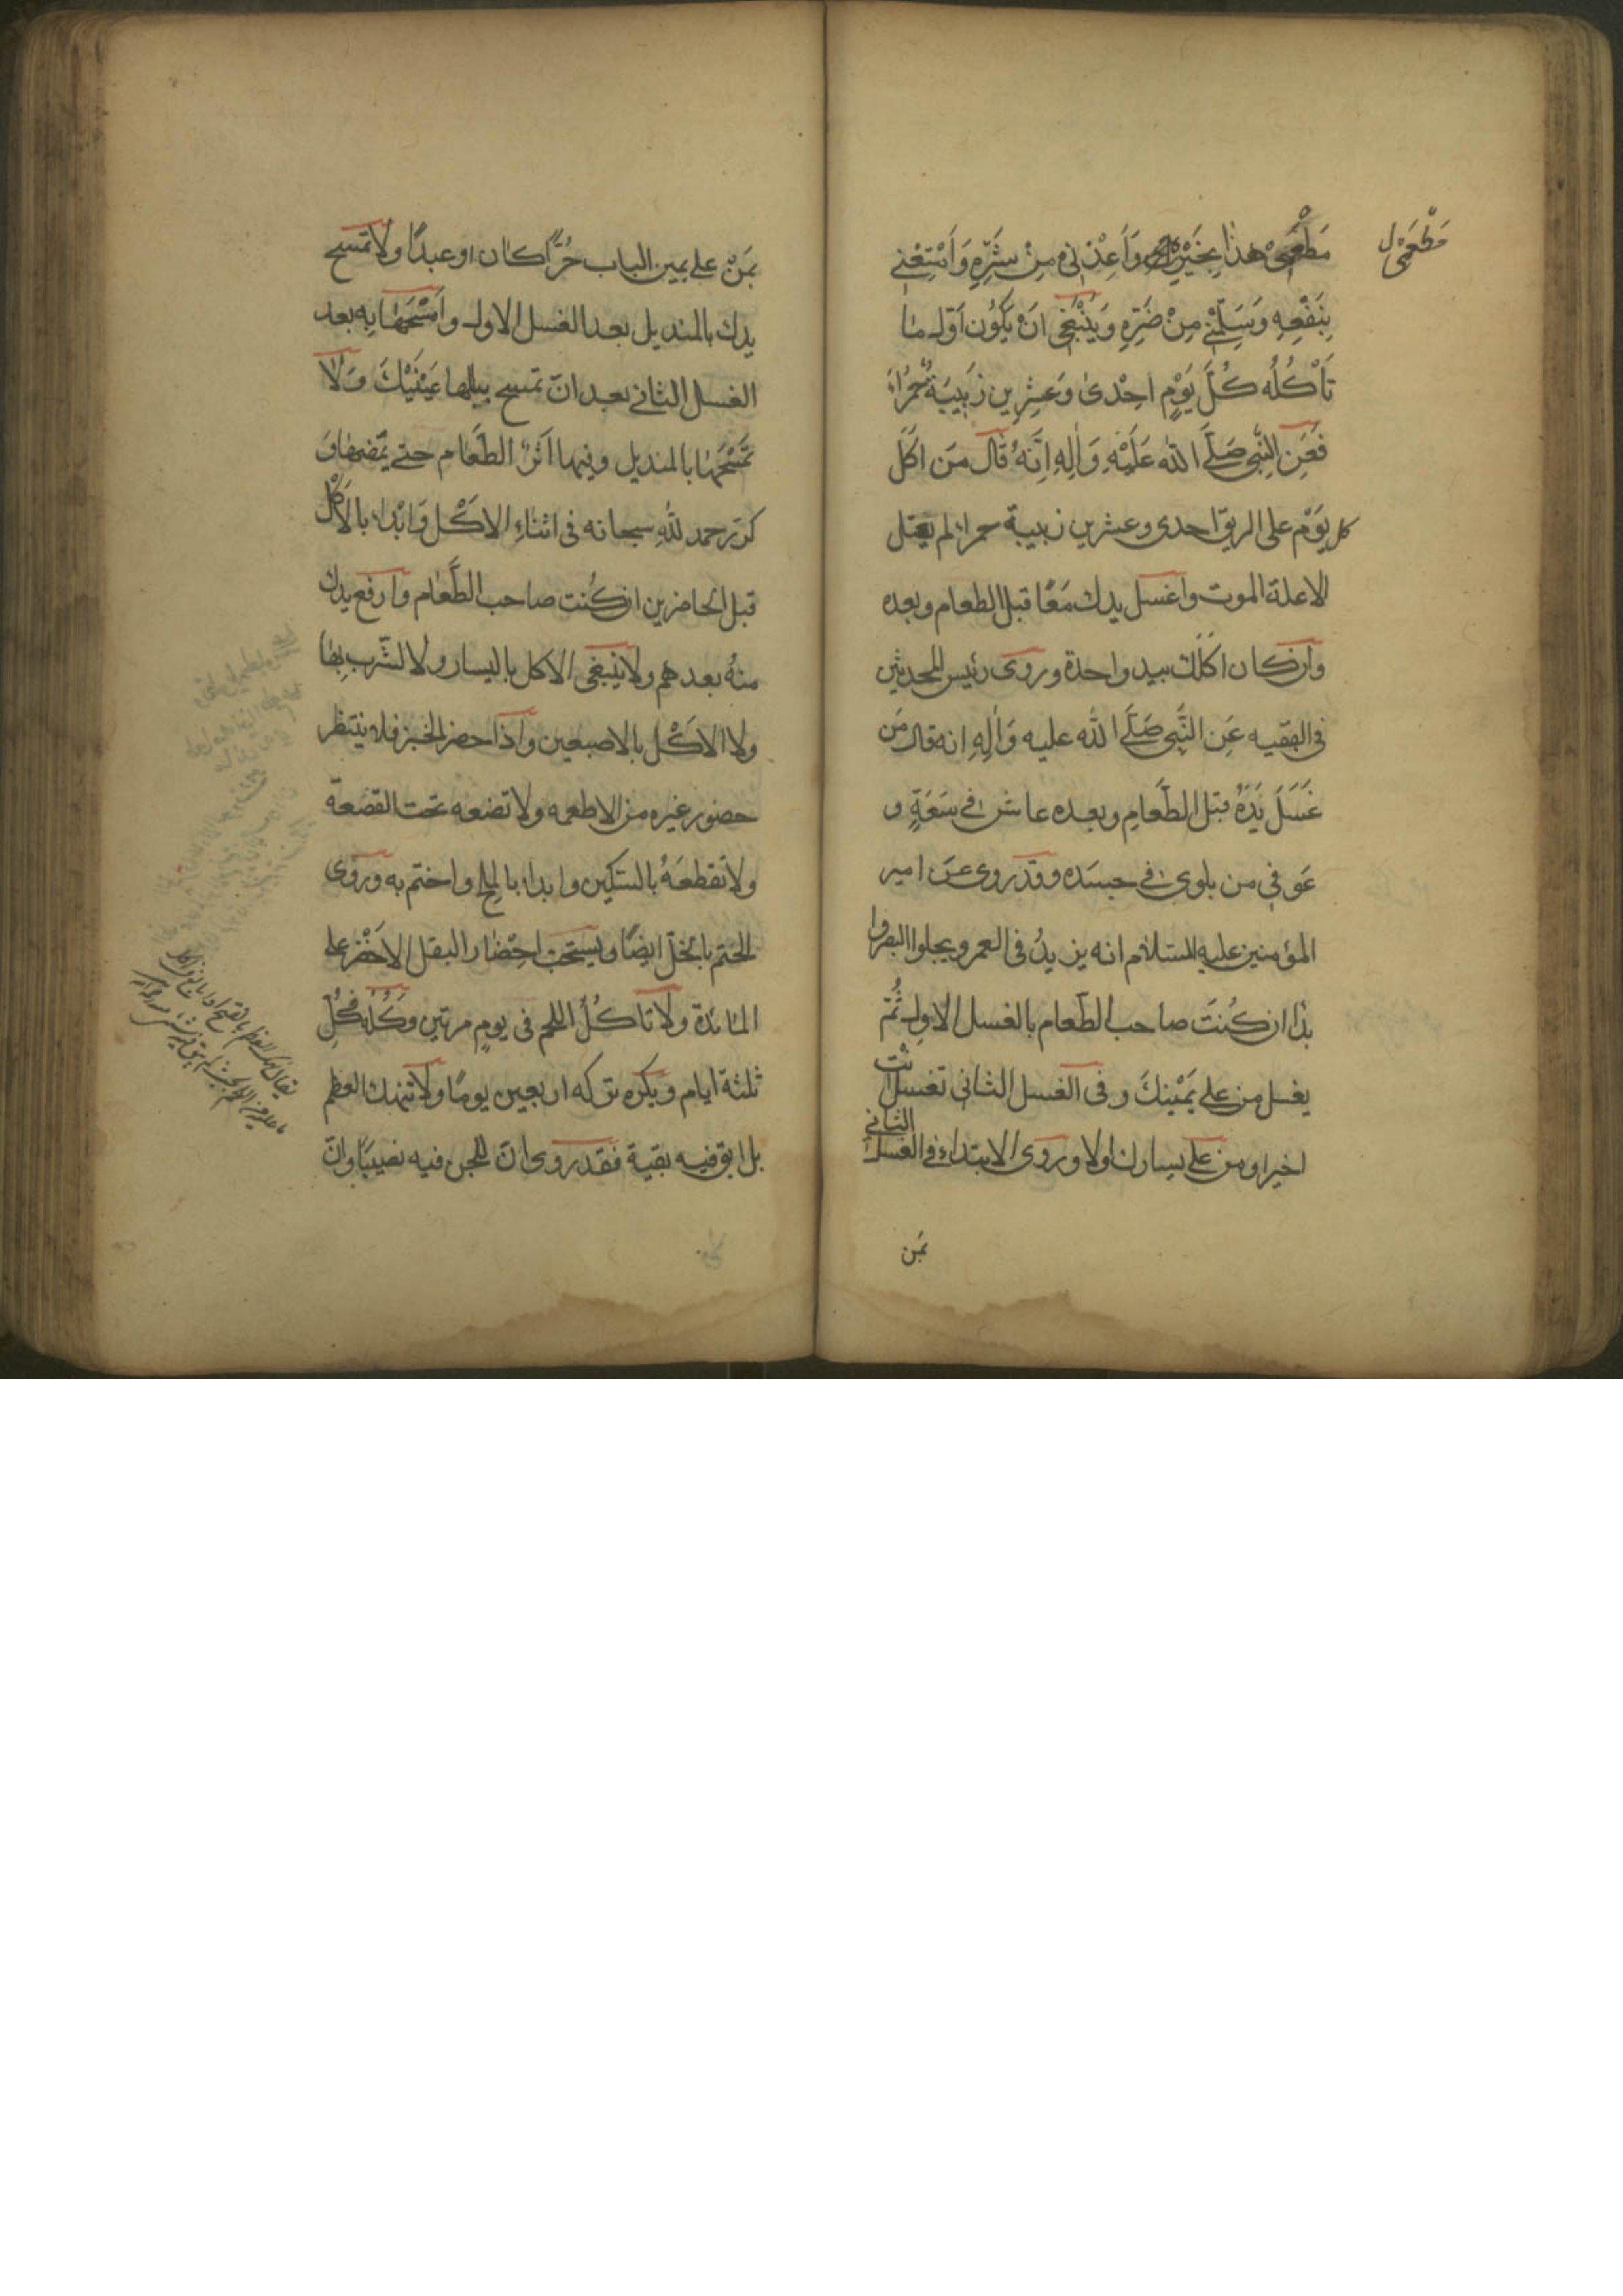 مَطْعَمِى هٰذٰا بِخَيْرِهِ وَاَعِذْنِى مِنْ شَرِّهِ وَاَمْتِعْنِى
مَطْعَمِى ل
بِنَفْعِهِ وَسَلِّمْنِى مِنْ ضَرِّهِ وَيَنْبَغِى اَنْ يَكُونَ اَوّلـ مٰا
تَأْكُلُه كُلَّ يَوْمٍ اِحْدىٰ وَعَشْرِين زَبِيبَةً حُمْرٰاءَ
فَعَنِ النَّبِى صَلَّى اللّٰه عَلَيْهِ وَاٰلِهِ اِنَّهُ قٰالَ مَن اَكَلَ
كل يَوْم على الريق احدى وعشرين زبيبة حمراء لم يعتل
الاعلة الموت واغسل يدك مَعًا قبل الطعام وبعده
وان كان اكلك بيد واحدة وروى رئيس المحدثين
فى الفقيه عَنِ النَّبِى صَلَّى اللّٰه عليه وَاٰلِهِ انه قال مَن
غَسَلَ يَدَهُ قبل الطَّعٰامِ وبعده عاش فى سَعَةٍ و
عَوفِى من بلوى فى جسَده وقد روى عَن امير
المؤمنين عليه السّلام انه يزيدُ فى العمر ويجلوا البصر وا
بدٰا ان كُنتَ صاحب الطّعام بالغسل الاول ثُمّ
يغسل من على يَمْينكَ وفى الغسل الثانى تغسل انْت
اخيرا ومن على يسارك اولا وروى الابتداء فى الغسل الثانى
بمَن
بمَنْ على يمين الباب حُرًّا كان او عبدًا ولا تمسح
يدك بالمنديل بعد الغسل الاول وامْسَحْهٰا بِه بعد
الغسل الثانى بعد انْ تمسح ببللها عَيْنَيْكَ وَلٰا
تمْسَحْهٰا بالمنديل وفيها اَثَرُ الطّعٰام حتى تمضها وَ
كرّر حمد للّٰهِ سبحانه فى اثناءِ الاكْل وَابْداء بالْاَكْل
قبل الحاضرين ان كُنت صاحب الطّعٰام وارفع يدك
منهُ بعدهم ولا ينبغى الاكل باليسار ولا الشّرب بِهٰا
ولا الاكْل بالاصبعين واذا حضر الخبز فلا ينتظر
حضور غيره من الاطعمه ولا تضعه تحت القصعة
ولا تقطعَهُ بالسّكين وابداء بالملح واختم به وروى
الختم بالخلّ ايضًا ويستحبّ احْضٰار البقل الاخْضر على
المٰائدة ولا تاكُل اللحم فى يومٍ مرتين وَكُلْهُ فى كُلّ
ثلثة ايام ويكره تركه اربعين يومًا ولا تنهك العظم
بل ابق فيه بقية فقد روى انّ للجن فيه نصيبًا وانّ